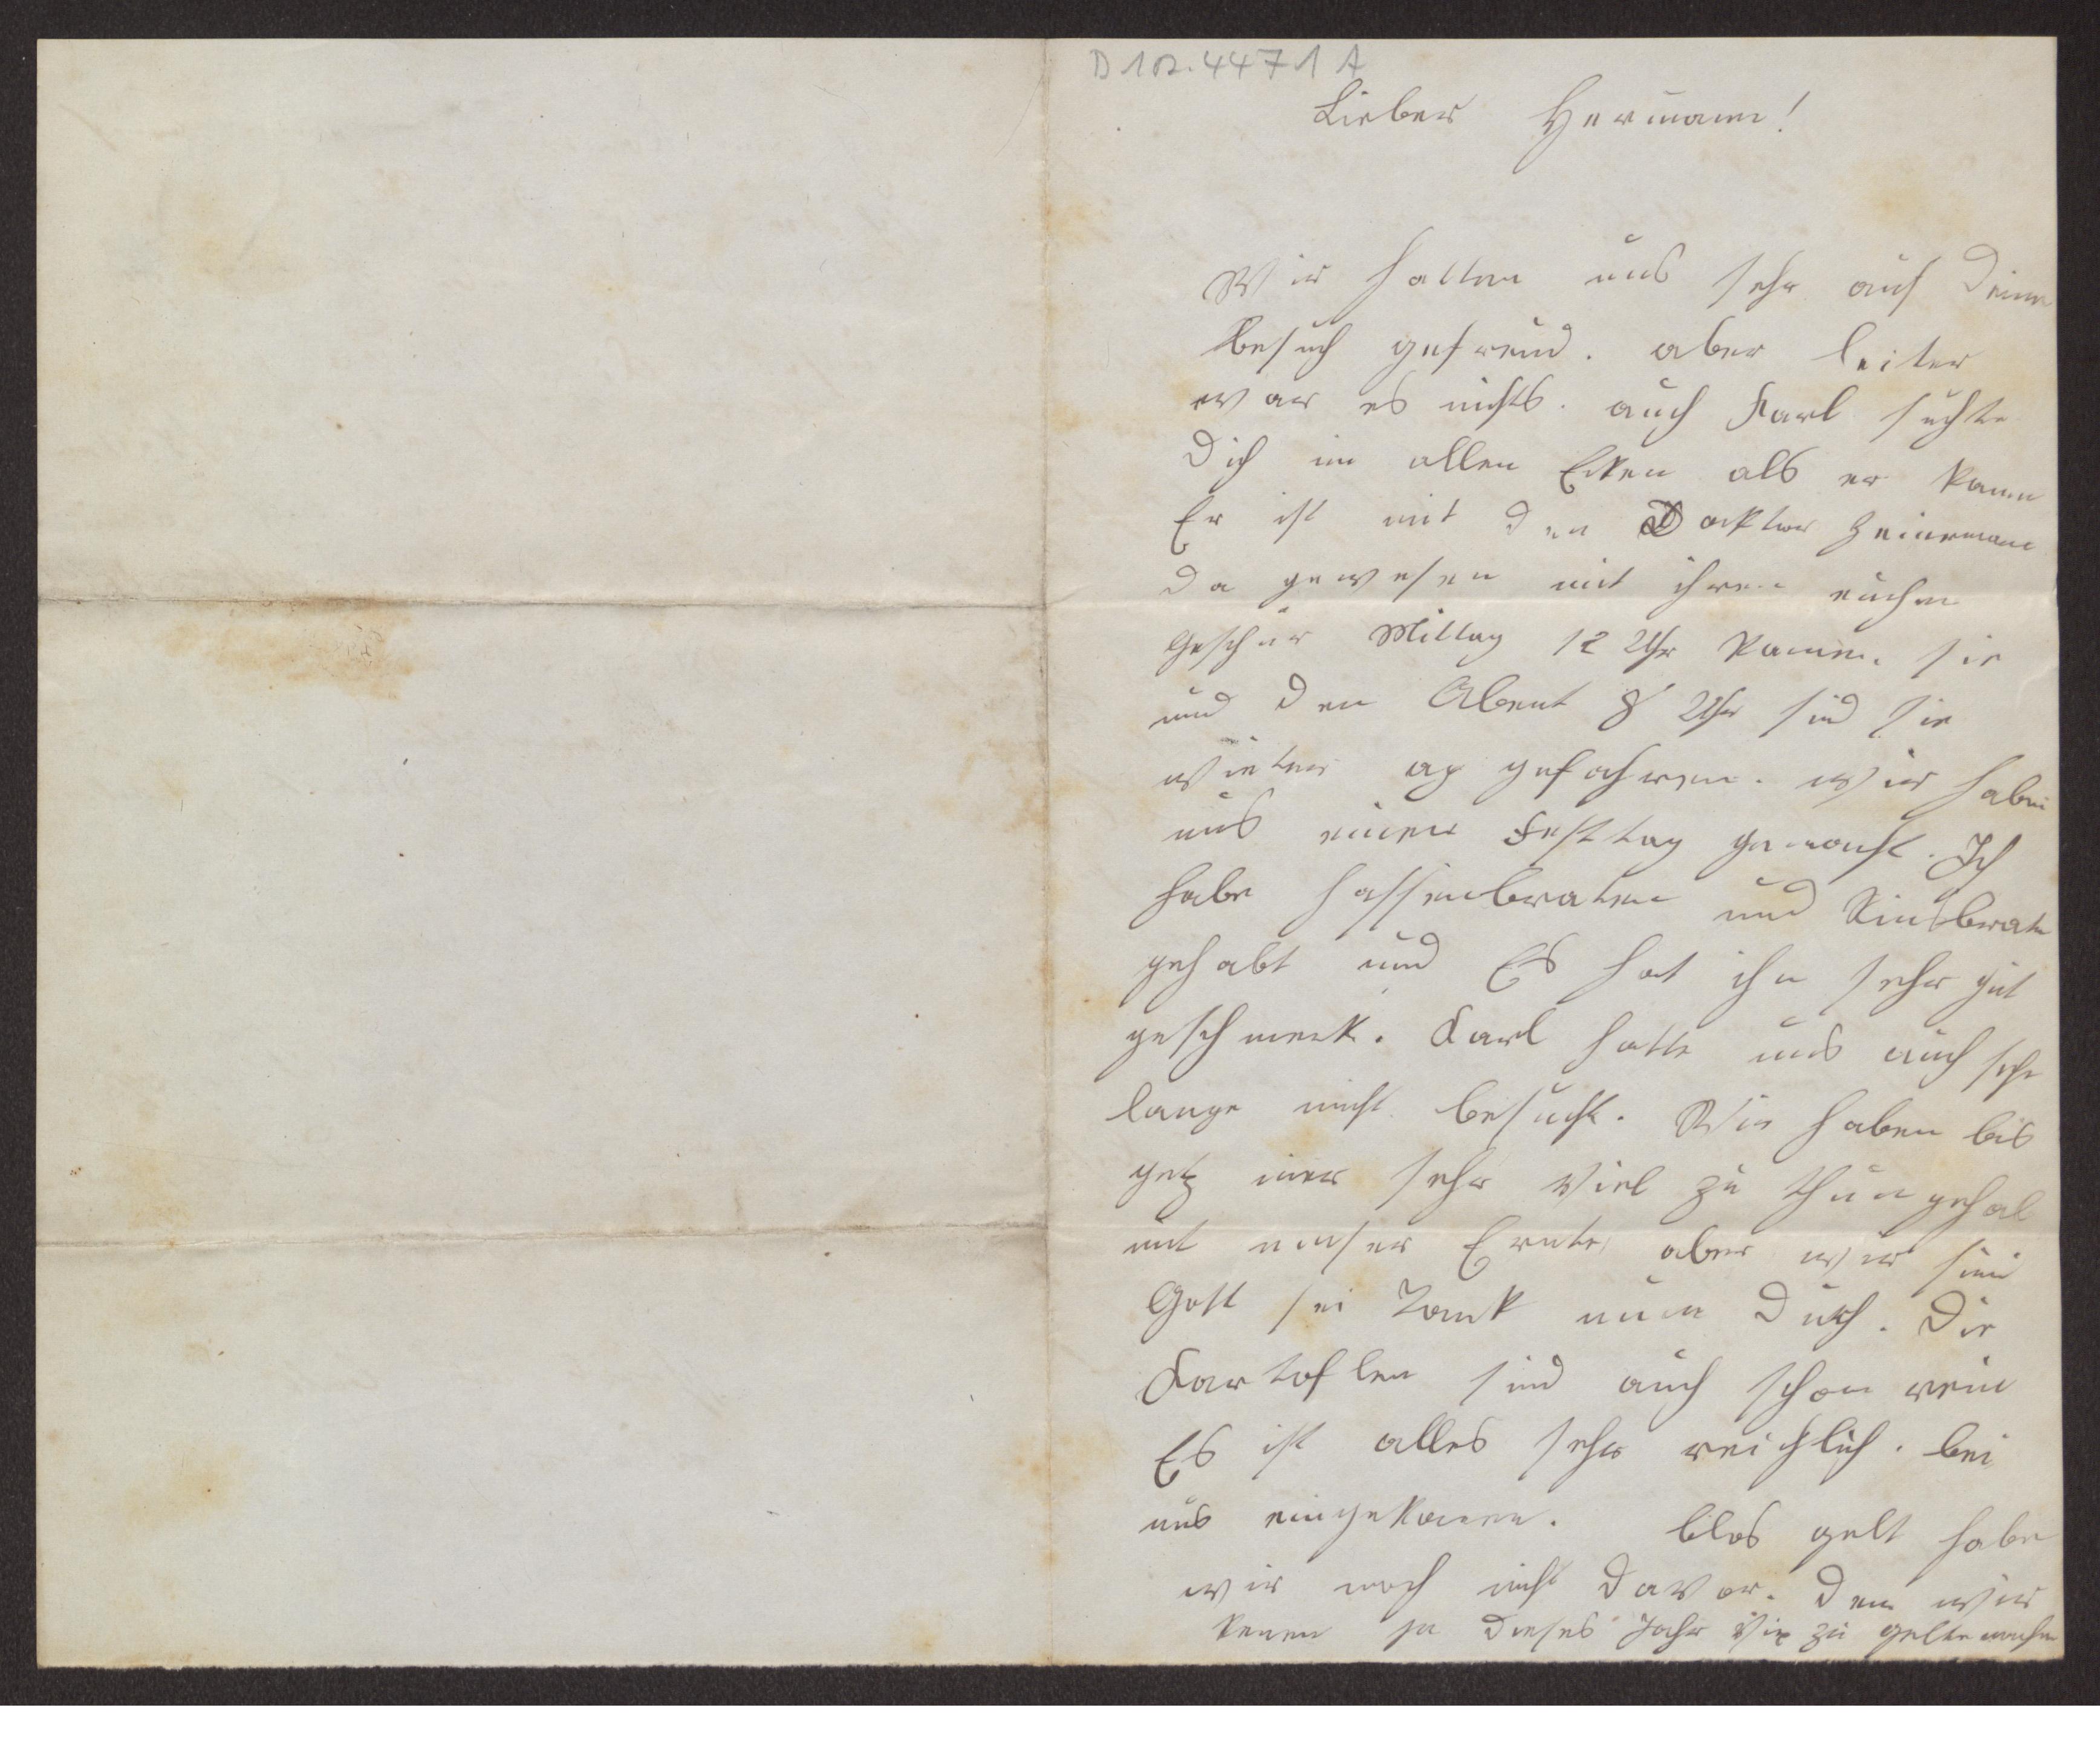 D 102.4471 A
Lieber Hermann!
Wir hatten uns sehr auf deinen
Besuch gefreud. aber leiter
war es nichts. auch Karl suchte
dich in allen Ecken als er kamm
Er ist mit den Docktor Heinemann
da gewesen mit ihren
Geschir Mittag 12 Uhr kamen sie
und den Abent 8 Uhr sind sie
wieter ap gefahren. wir haben
uns einen Festtag gemacht. Ich
habe Hassenbraten und Rindsbraten
gehabt und Es hat ihn sehr gut
geschmeck. Karl hatte uns auch sehr
lange nicht besucht. Wir haben bis
getz imer sehr viel zu thun gehab
mit unser Ernte, aber wir sind
Gott sei Tank nun durch. Die
Kartoflen sind auch schon rein
Es ist alles sehr reichlich. bei
uns eingekomen. blos gelt habe
wir noch nicht davor. den wir
kenen ja dieses Jahr nix zu gelte machen